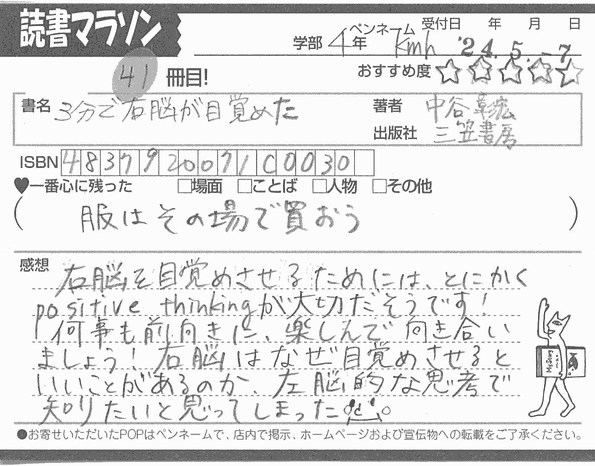 読書マラソン
ペンネーム 受付日 年 月 日
学部 4年 kmh '24.5.-7
41 冊目! おすすめ度
書名 3分で右脳が目覚めた 著者 中谷彰宏
出版社 三笠書房
ISBN 4837920071C0030
♥一番心に残った □場面 □ことば □人物 □その他
(服はその場で買おう)
感想 右脳を目覚めさせるためには、とにかく
positive thinkingが大切だそうです!
何事も前向きに、楽しんで向き合い
ましょう! 右脳はなぜ目覚めさせると
いいことがあるのか、左脳的な思考で
知りたいと思ってしまった
●お寄せいただいたPOPはペンネームで、店内で掲示、ホームページおよび宣伝物への転載をご了承ください。